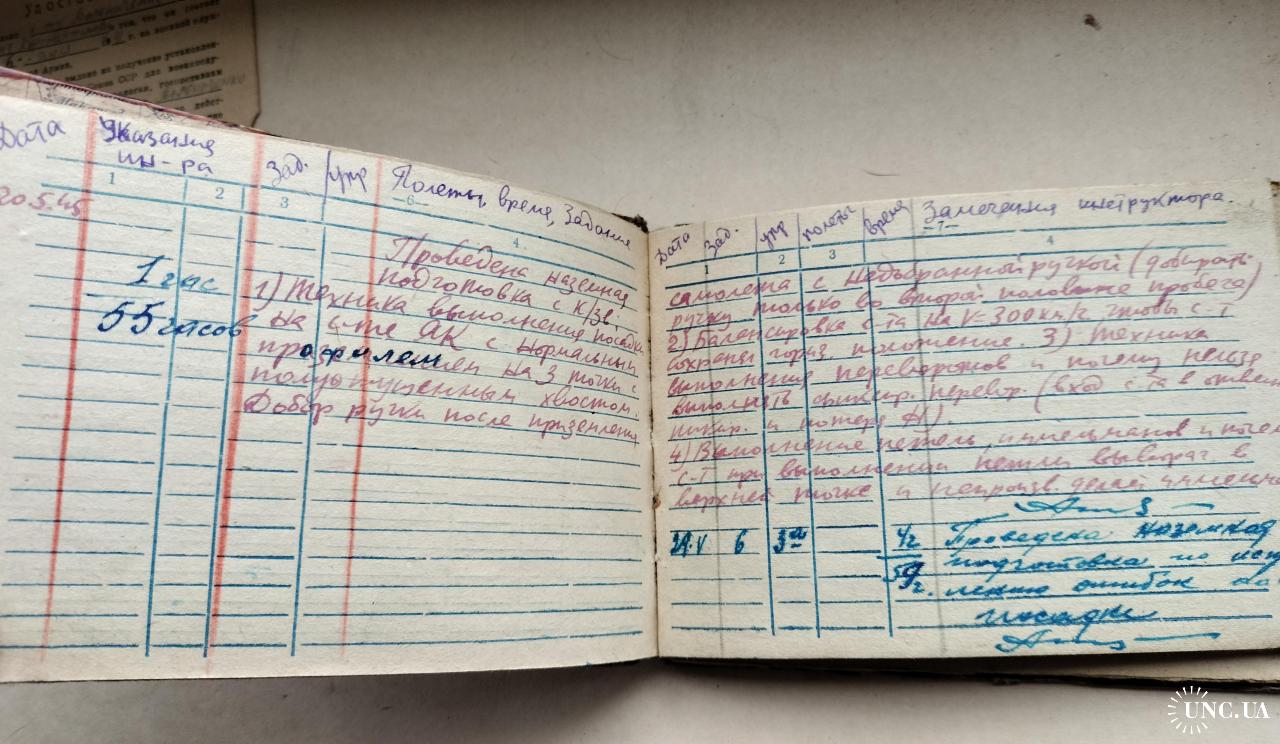 Удост
том, что он состоит
г. на военной служ-
Армии.
на получение установлен-
Союза ССР для военнослу-
дейст-
Дата Указания ин-ра Зад. упр Полеты, время, Задания
1 2 3 6 4
20.5.45
Проведена наземная
1 час подготовка с к/зв:
1) Техника выполнения посадки
55 часов на с-те АК с нормальным
профилем на 3 точки с
полуопущенным хвостом.
Добор ручки после приземления
Дата Зад. упр полеты время Замечания инструктора.
1 2 3 7 4
самолета с недобранной ручкой (добирать
ручку только во второй половине пробега)
2) Балансировка с-та на V=300 км/ч чтобы с-т
сохранял гориз. положение. 3) Техника
выполнения переворотов и почему нельзя
выполнять перевор. (вход с-та в отвесн
пикир. и потеря H).
4) Выполнение петель, иммельманов и почем
с-т при выполнении петли в
верхней точке и делает иммельм
24.V 6 3
Проведена наземная
подготовка по испр
лению ошибок на
посадке
UNC.UA